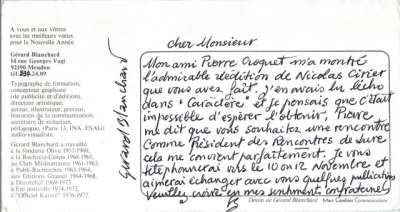 A vous et aux vôtres
avec les meilleurs vœux
pour la Nouvelle Année
Gérard Blanchard
14 rue Georges Vogt
92190 Meudon
tél. .24.09
Typographe de formation,
concepteur graphique
(de publicité et d'édition),
directeur artistique,
auteur, illustrateur, graveur,
historien de la communication,
secrétaire de rédaction,
pédagogue, (Paris 13, INA, ESAG)
audio-visualiste.
Gérard Blanchard a travaillé
à la fonderie Olive 1957-1960,
à la Rochette-Cenpa 1960-1961,
au Club Méditerranée 1961-1963,
à Publi-Recherches 1963-1964,
aux Editions Grasset 1964-1968,
à Decorebel 1969-1973,
à Ere nouvelle 1974-1975,
à "Officiel Kurier" 1976-1977.
Gérard Blanchard
cher Monsieur
Mon ami Pierre Croquet m'a montré
l'admirable réédition de Nicolas Cirier
que vous avez fait. j'en avais lu l'écho
dans "Caractère" et je pensais que c'était
impossible d'espérer l'obtenir, Pierre
me dit que vous souhaitez une rencontre
Comme Président des Rencontres de Lure
cela me convient parfaitement. Je vous
téléphonerai vers le 10 ou 12 Novembre et
aimerai échanger avec vous quelques publications
Veuillez croire en mes sentiments
Dessin de Gérard Blanchard
Marc Combier Communications